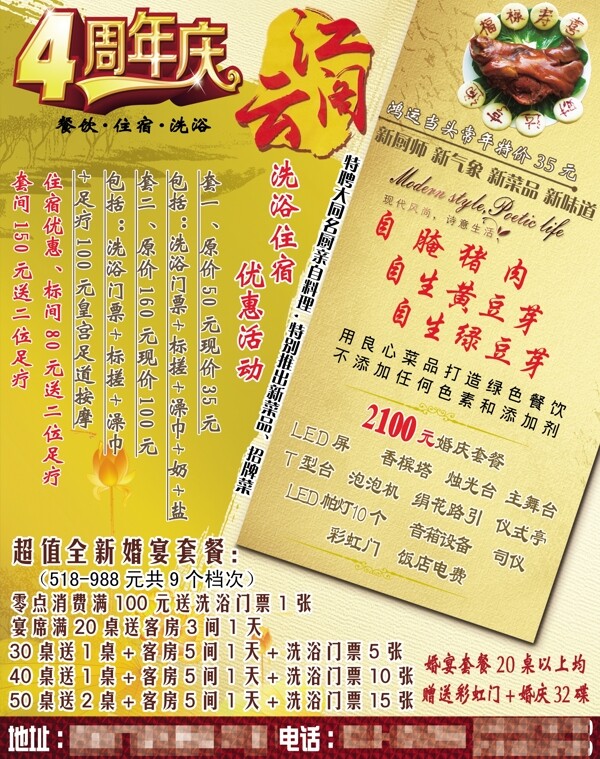 4周年庆
餐饮·住宿·洗浴
江阁云
福禄寿喜
鸿运当头常年特价35元
新厨师 新气象 新菜品 新味道
Modern style, Poetic life
现代风尚，诗意生活、
自腌猪肉
自生黄豆芽
自生绿豆芽
用良心菜品打造绿色餐饮
不添加任何色素和添加剂
特聘大同名厨亲自料理·特别推出新菜品、招牌菜
洗浴住宿
优惠活动
套一、原价50元现价35元
包括：洗浴门票+标搓+澡巾+奶+盐
套二、原价160元现价100元
包括：洗浴门票+标搓+澡巾
+足疗100元皇宫足道按摩
住宿优惠、标间80元送二位足疗
套间150元送二位足疗
2100元婚庆套餐
LED屏 香槟塔 烛光台 主舞台
T型台 泡泡机 绢花路引 仪式亭
LED帕灯10个 音箱设备 司仪
彩虹门 饭店电费
超值全新婚宴套餐：
（518-988元共9个档次）
零点消费满100元送洗浴门票1张
宴席满20桌送客房3间1天
30桌送1桌+客房5间1天+洗浴门票5张
40桌送1桌+客房5间1天+洗浴门票10张
50桌送2桌+客房5间1天+洗浴门票15张
婚宴套餐20桌以上均
赠送彩虹门+婚庆32碟
地址：
电话：